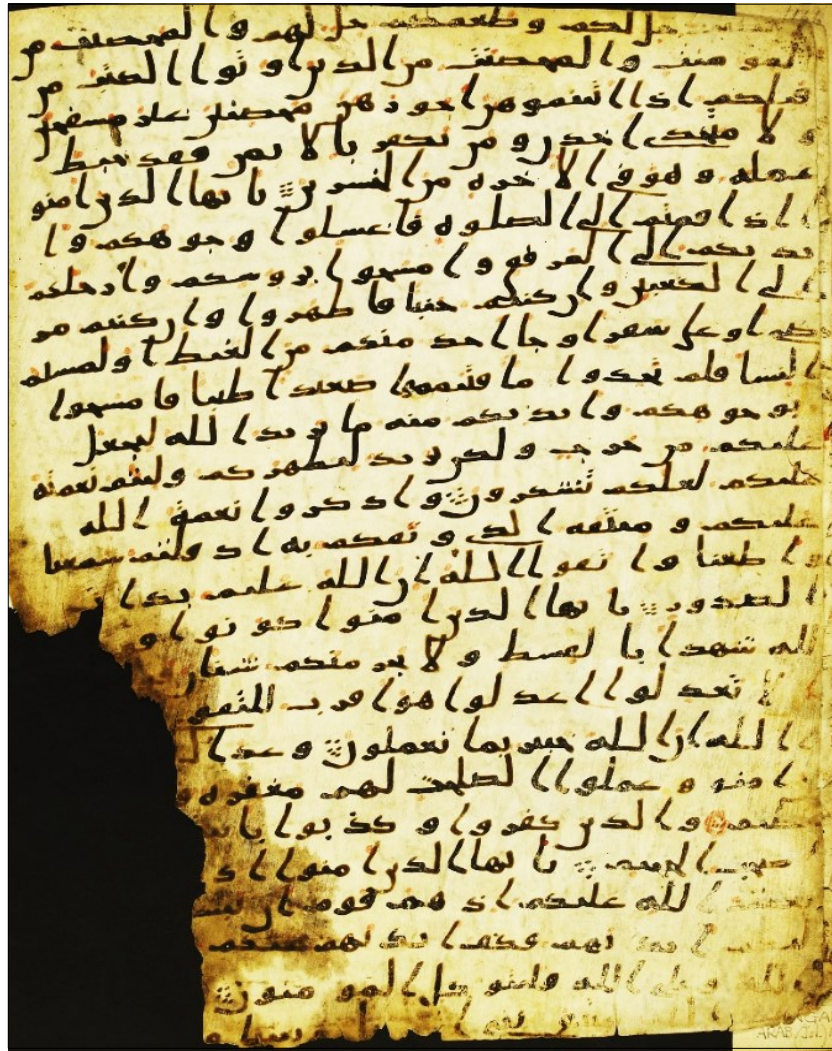 حل لكم وطعمكم حل لهم والمحصنت من
المومنت والمحصنت من الذين اوتوا الكتب من
قبلكم اذا اتيتموهن اجورهن محصنين غير مسفحين
ولا متخذي اخدن ومن يكفر بالايمن فقد حبط
عمله وهو في الاخرة من الخسرين يايها الذين امنوا
اذا قمتم الى الصلوة فاغسلوا وجوهكم وا
يديكم الى المرفق وامسحوا بروسكم وارجلكم
الى الكعبين وان كنتم جنبا فاطهروا وان كنتم مر
ضى او على سفر او جا احد منكم من الغيط او لمستم
النسا فلم تجدوا ما فتيمموا صعيدا طيبا فامسحوا
بوجوهكم وايديكم منه ما يريد الله ليجعل
عليكم من حرج ولكن يريد ليطهركم وليتم نعمته
عليكم لعلكم تشكرون واذكروا نعمة الله
عليكم وميثقه الذي وثقكم به اذ قلتم سمعنا
واطعنا واتقوا الله ان الله عليم بذا
الصدور يايها الذين امنوا كونوا قو
لله شهدا بالقسط ولا يجرمنكم شنان
الا تعدلوا اعدلوا هو اقرب للتقوى
الله ان الله خبير بما تعملون وعد ال
امنوا وعملوا الصلحت لهم مغفرة و
عظيم والذين كفروا وكذبوا باي
اصحب الجحيم يايها الذين امنوا اذ
نعمت الله عليكم اذ هم قوم ان يبس
اليكم ايديهم فكف ايديهم عنكم
الله وعلى الله فليتوكل المومنون